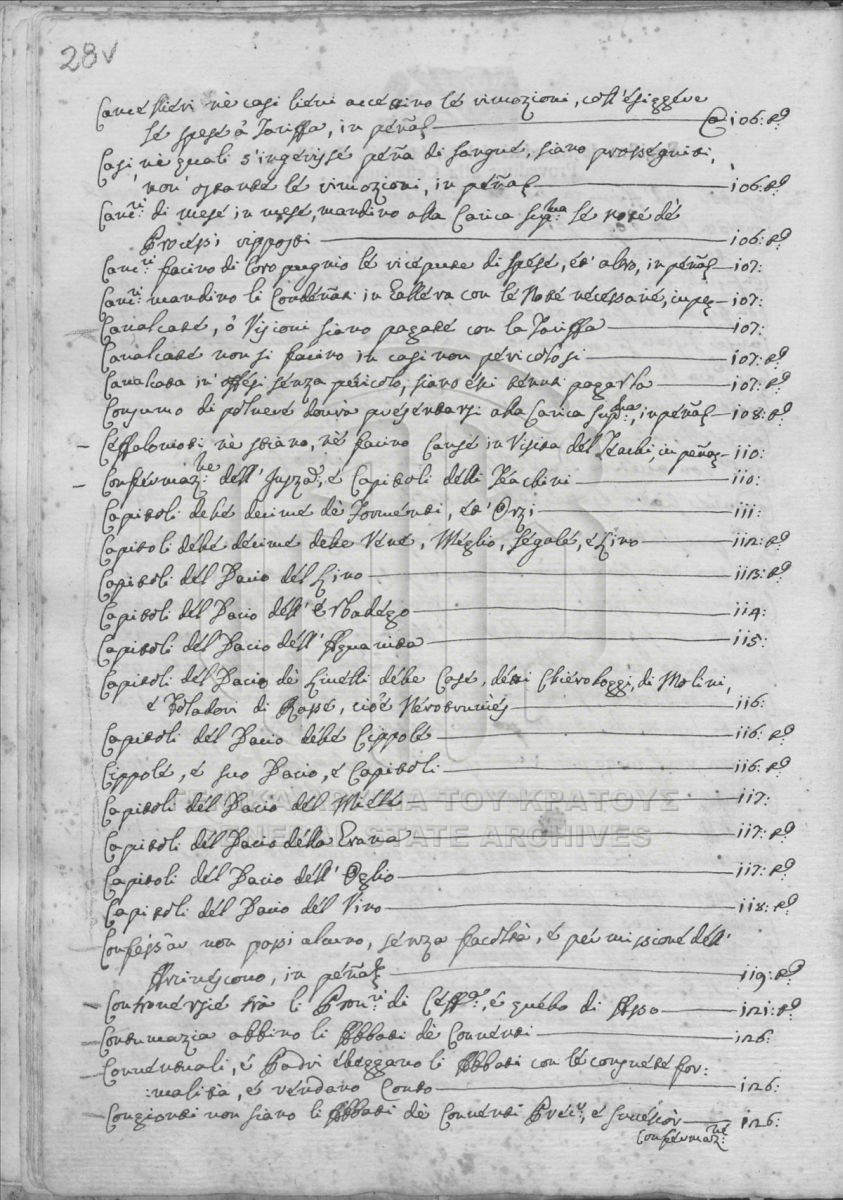 28v
Cancellieri nè casi lievi accettino le rimozioni, coll'esiggere
le spese à Tariffa, in pena C 106: tº
Casi, nè quali s'ingerisse pena di sangue, siano prosseguiti,
non' ostante le rimozioni, in pena 106: tº
Canc.ri di mese in mese, mandino alla Carica Sup.ma le note dè
Processi risposti 106: tº
Canc.ri facino di loro pugnio le ricevute di spese, et' altro, in pena 107:
Canc.ri mandino li Condenati in Gallera con le Note necessarie, in pena 107:
Cavalcate, ò Visioni siano pagate con la Tariffa 107:
Cavalcate non si facino in casi non pericolosi 107: tº
Cavalcata in' offesi senza pericolo, siano essi tenuti pagarla 107: tº
Consumo di polvere dovrà presentarsi alla Carica Sup.ma, in pena 108: tº
Ceffalonioti nè stiano, nè facino Case in Visita del Teachi, in pena 110:
Confermaz.ne dell' , è Capitoli delli Teachini 110:
Capitoli delle decime dè Formenti, et' Orzi 111:
Capitoli delle decime delle Vene, Meglio, Segale, è Lino 112: tº
Capitoli del Dacio del Lino 113: tº
Capitoli del Dacio dell' Erbadego 114:
Capitoli del Dacio dell' Aquavita 115:
Capitoli del Dacio dè Livelli delle Case, detti Chierotoggi, di Molini,
è Foladori di Rasse, cioè 116:
Capitoli del Dacio delle Cippole 116: tº
Cippole, è suo Dacio, è Capitoli 116: tº
Capitoli del Dacio del Miele 117:
Capitoli del Dacio della Grana 117: tº
Capitoli del Dacio dell' Oglio 117: tº
Capitoli del Dacio del Vino 118: tº
Confessar non possi alcuno, senza facoltà, è permissione dell'
Arcivescovo, in pena 119: tº
Controversie trà li di Ceff.a, è quello di Asso 121: tº
Contumazia abbino li Abbati dè Conventi 126:
Conventuali, è Padri eleggano li Abbati con le consuete for:
:malità, è rendano Conto 126:
Congionti non siano li Abbati dè Conventi , è 126:
Confermaz.ne
ΓΕΝΙΚΑ ΑΡΧΕΙΑ ΤΟΥ ΚΡΑΤΟΥΣ
GENERAL STATE ARCHIVES